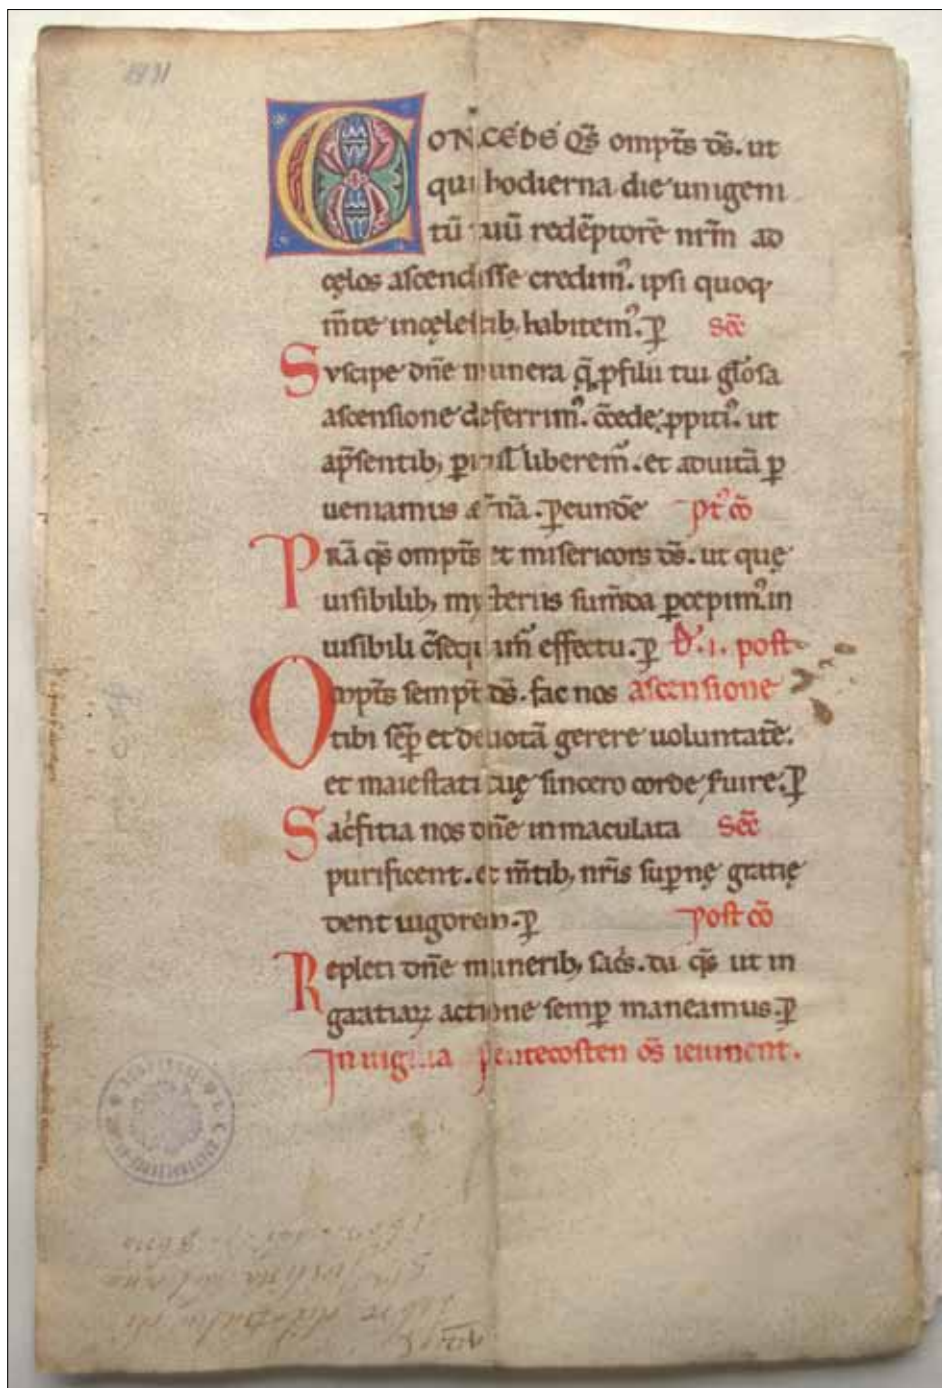 CONCEDE q̄s omp̄ts d̄s. ut
qui hodierna die unigeni
tū tuū redēptorē nr̄m ad
cęlos ascendisse credim᷒. ipsi quoq
m̄te in cęlestib; habitem᷒. ꝑ Sēc
Suscipe dn̄e munera q̄ ꝓ filii tui gl̄osa
ascensione deferrim᷒. c̄cede ꝓpiti᷒. ut
a p̄sentib; periculˡ liberem᷒. et ad uitā ꝑ
ueniamus et̄nā. ꝑ eundē Pt᷒ cō
Prā q̄s omp̄ts et misericors d̄s. ut quę
uisibilib; mysteriis sum̄da ꝑcepim᷒. in
uisibili c̄sequam᷒ effectu. ꝑ D̄. i. post
Omp̄ts semp̄t d̄s. fac nos ascensione
tibi sēꝑ et deuotā gerere uoluntatē.
et maiestati tuę sincero corde s̄uire. ꝑ
Sac̍fitia nos dn̄e inmaculata Sēc
purificent. et m̄tib; nr̄is suꝑnę gratię
dent uigorem. ꝑ Post cō
Repleti dn̄e munerib; sac̍s. da q̄s ut in
gaatiaꝝ actione semꝑ maneamus. ꝑ
In uigilia pentecosten om̄s ieiunent.